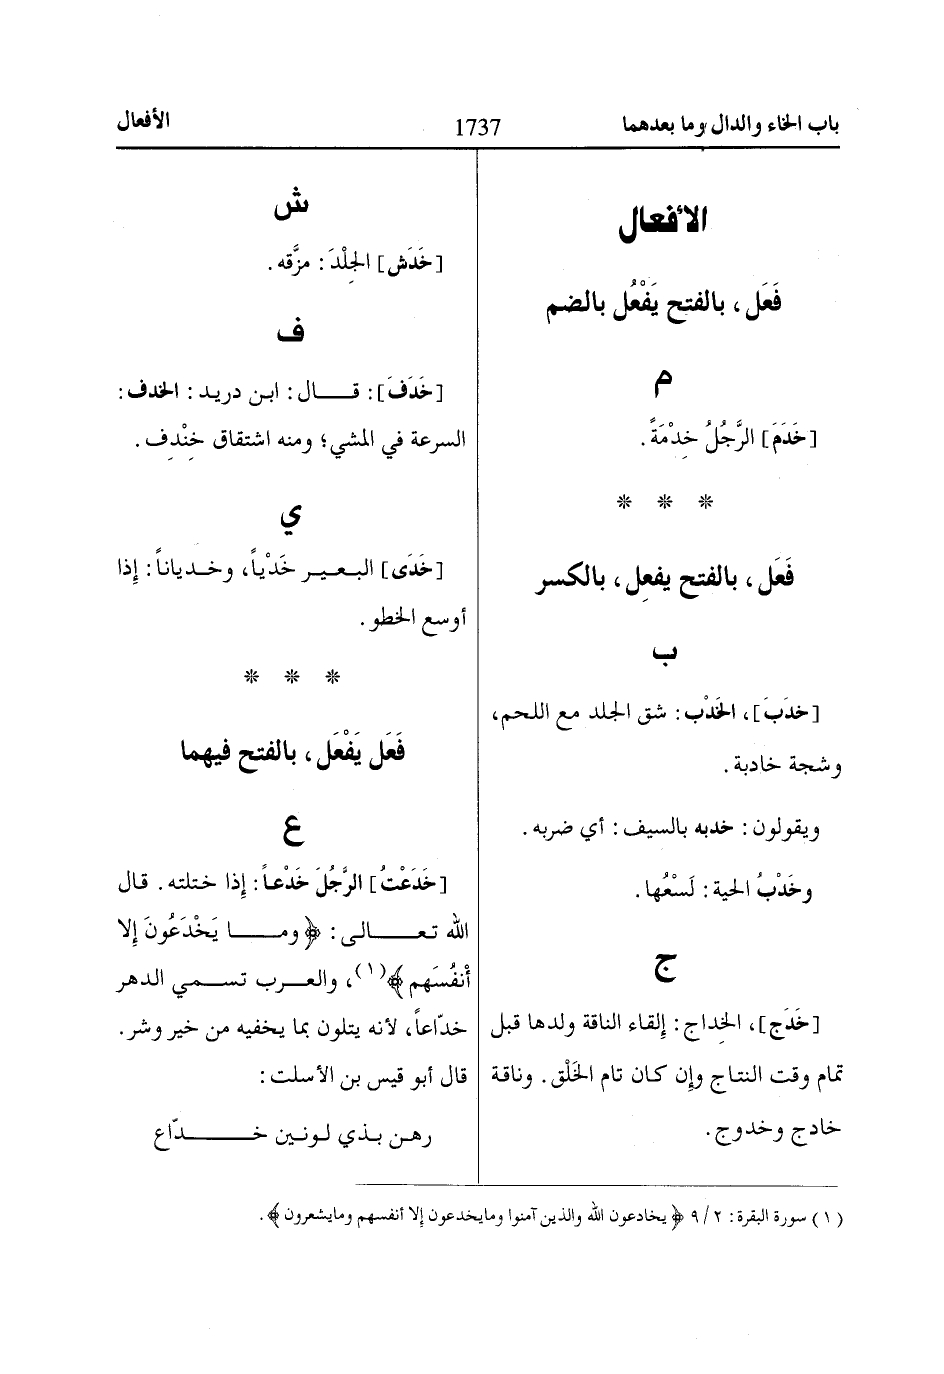 باب الخاء والدال وما بعدهما 1737 الأفعال
الأفعال
فَعَل، بالفتح يَفْعُل بالضم
م
[خَدَمَ] الرَّجُلُ خِدْمَةً.
* * *
فَعَل، بالفتح يفعِل، بالكسر
ب
[خدَبَ]، الخَدْب: شق الجلد مع اللحم،
وشجة خادبة.
ويقولون: خدبه بالسيف: أي ضربه.
وخَدْبُ الحية: لَسْعُها.
ج
[خَدَج]، الخِداج: إلقاء الناقة ولدها قبل
تمام وقت النتاج وإن كان تام الخَلْق. وناقة
خادج وخدوج.
ش
[خَدَش] الجِلْدَ: مزَّقه.
ف
[خَدَفَ]: قال: ابن دريد: الخدف:
السرعة في المشي؛ ومنه اشتقاق خِنْدِف.
ي
[خَدَى] البعير خَدْياً، وخدياناً: إذا
أوسع الخطو.
* * *
فَعَل يَفْعَل، بالفتح فيهما
ع
[خَدَعْتُ] الرَّجُلَ خَدْعاً: إذا ختلته. قال
الله تعالى: ﴿وما يَخْدَعُونَ إلا
أنْفُسَهم﴾(١)، والعرب تسمي الدهر
خدّاعاً، لأنه يتلون بما يخفيه من خير وشر.
قال أبو قيس بن الأسلت:
رهن بذي لونين خدّاع
(١) سورة البقرة: ٢/ ٩ ﴿يخادعون الله والذين آمنوا ومايخدعون إلا أنفسهم ومايشعرون﴾.